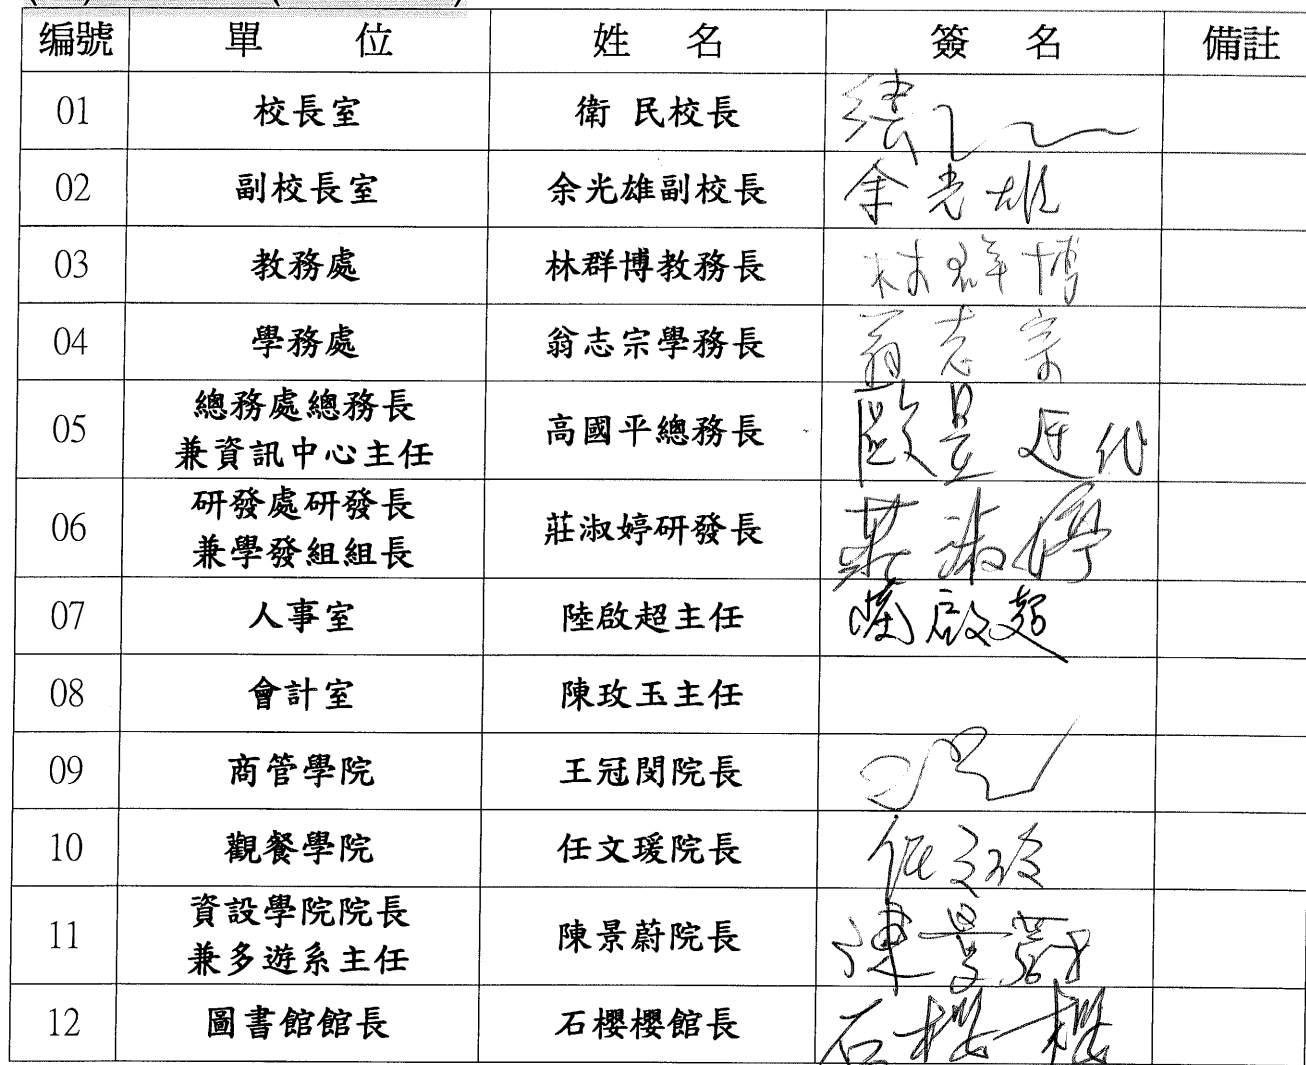 编號 單 位 姓 名 簽 名 備註
01 校長室 衛 民校長
02 副校長室 余光雄副校長 余光雄
03 教務處 林群博教務長 林群博
04 學務處 翁志宗學務長 翁志宗
05 總務處總務長
兼資訊中心主任 高國平總務長
06 研發處研發長
兼學發組組長 莊淑婷研發長 莊淑婷
07 人事室 陸啟超主任 陸啟超
08 會計室 陳玫玉主任
09 商管學院 王冠閔院長
10 觀餐學院 任文瑗院長 任文瑗
11 資設學院院長
兼多遊系主任 陳景蔚院長 陳景蔚
12 圖書館館長 石櫻櫻館長 石櫻櫻